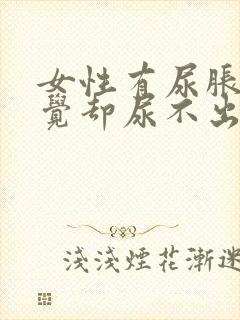 女性有尿脹
覺却尿不出
淺淺煙花漸迷